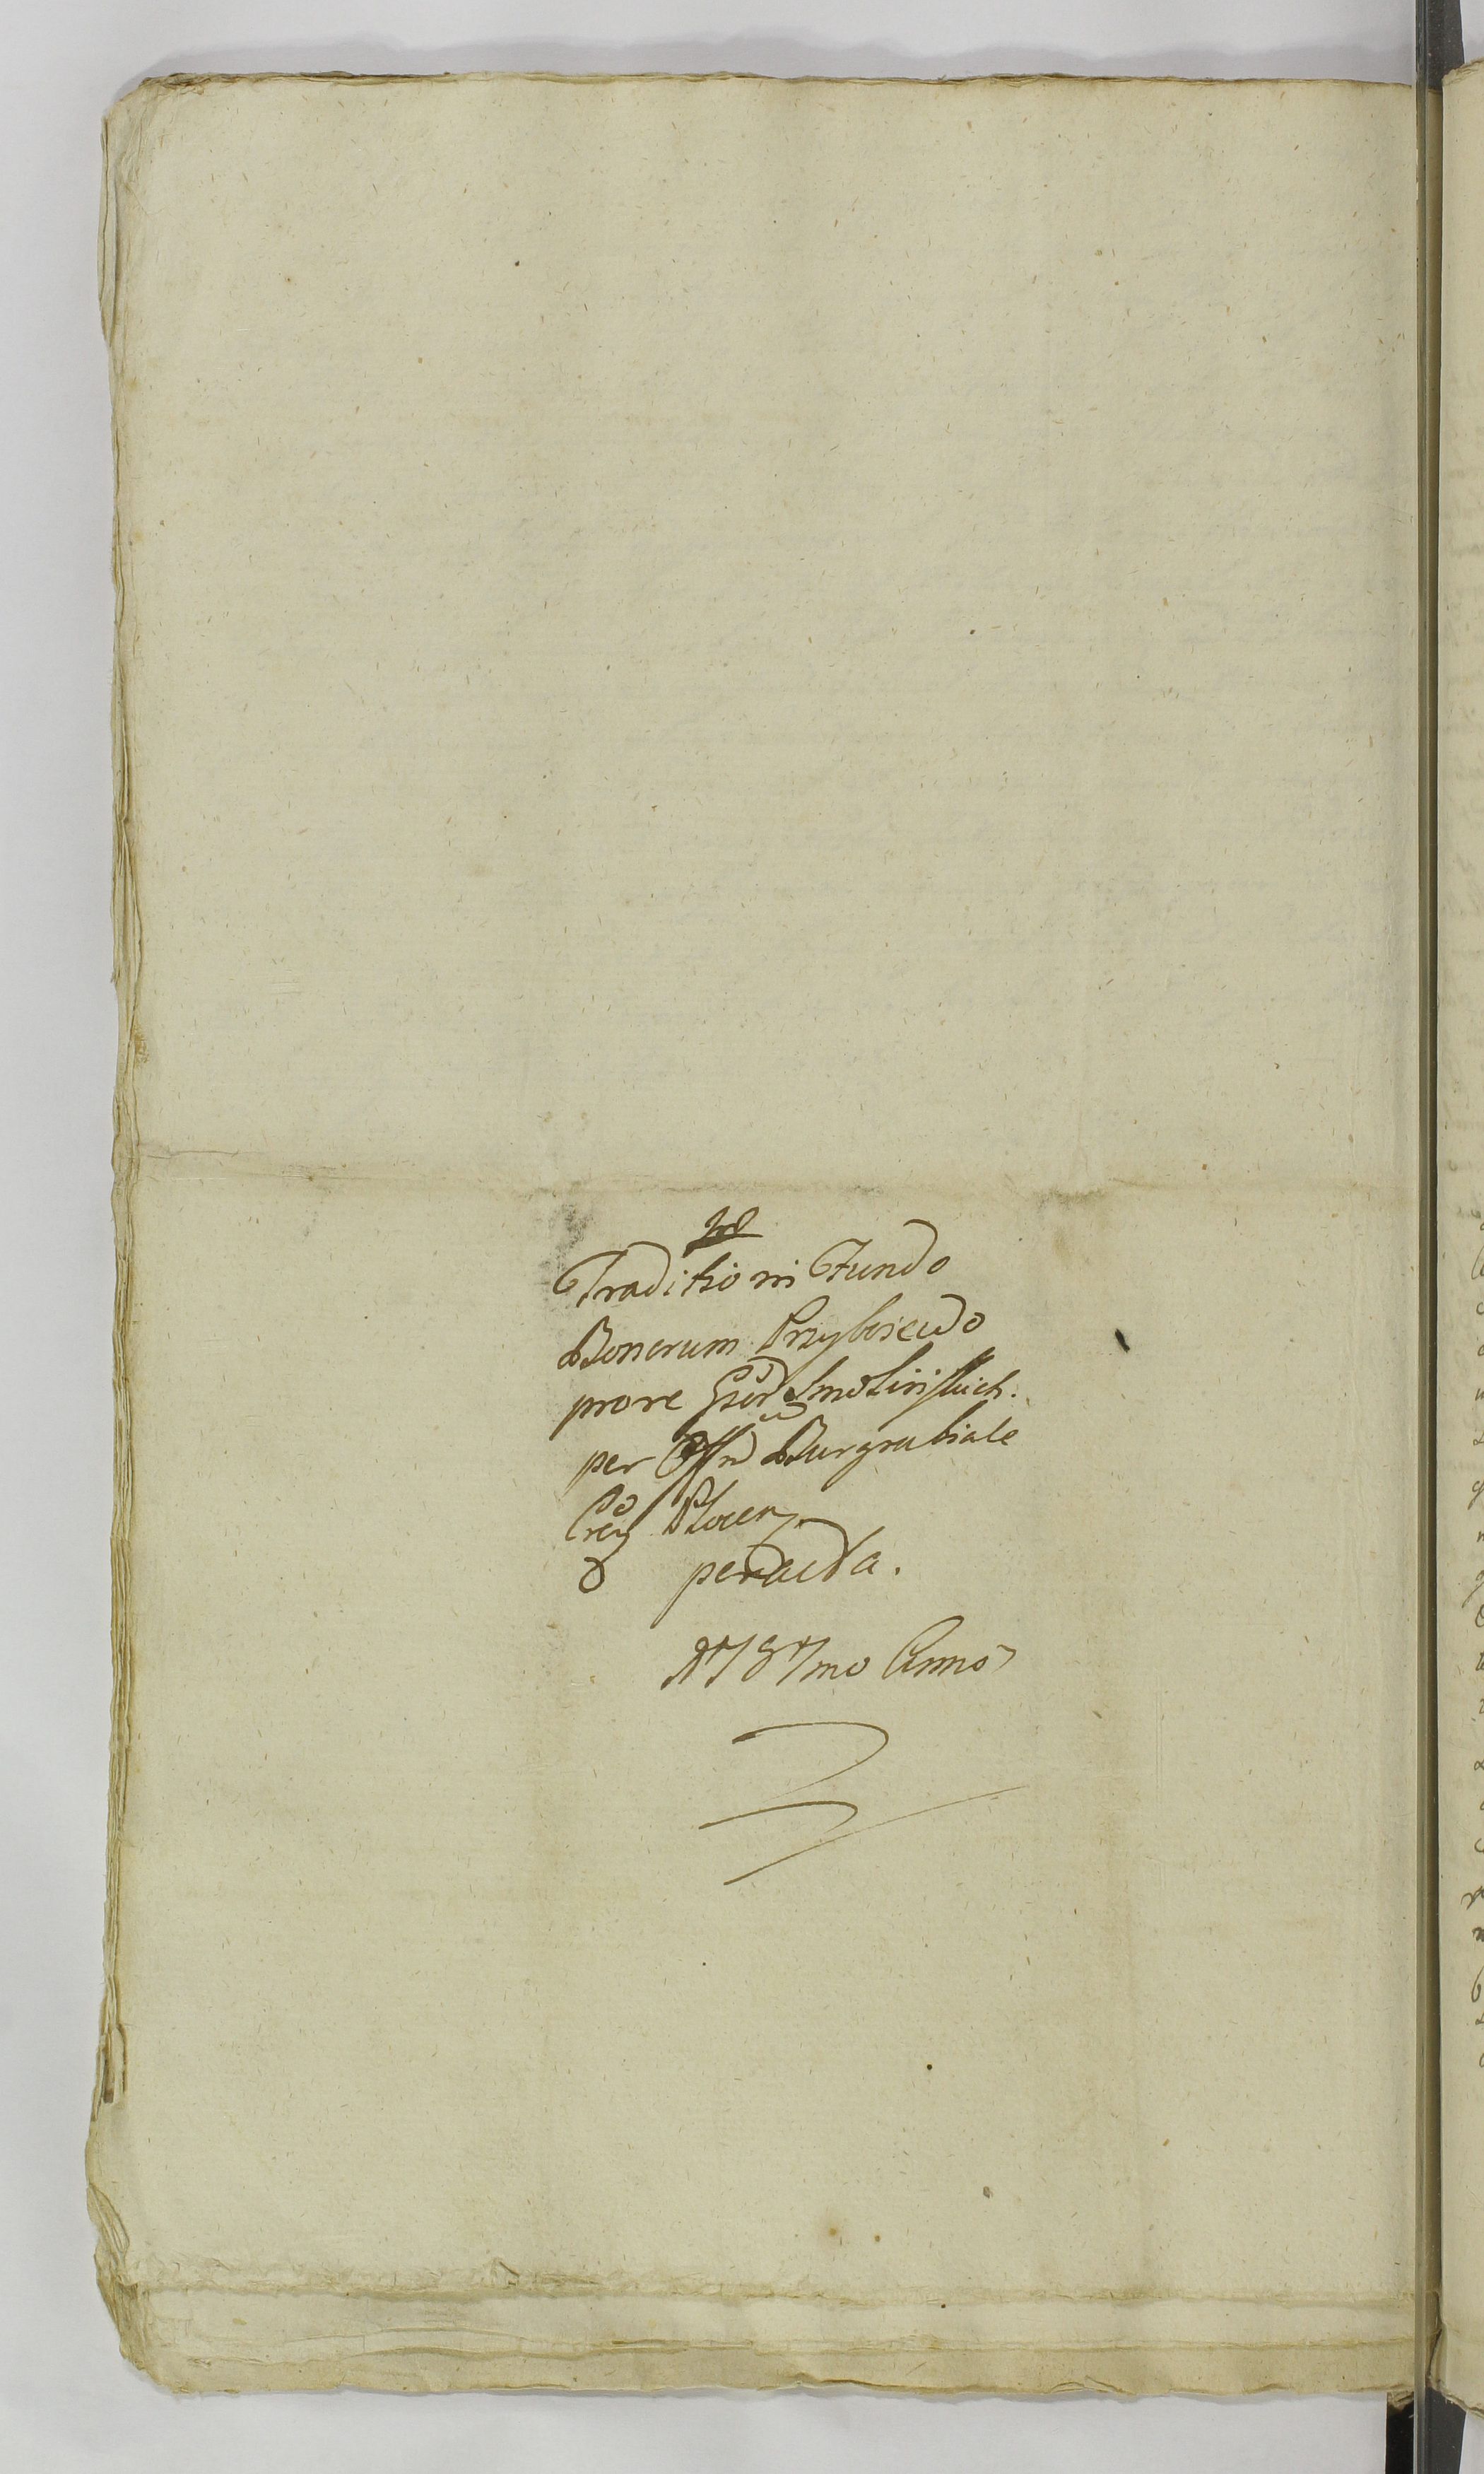 Traditio in Fundo
Bonorum Przyborowo
prore Gsor Smolinskich.
per Offm Burgrabiale
Crey Plocen
peracta.
1787mo Anno